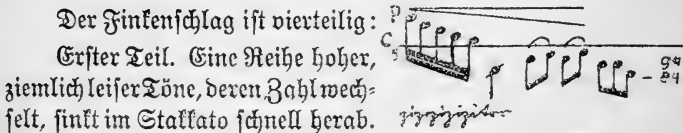 Der Finkenschlag ist vierteilig:
Erster Teil. Eine Reihe hoher,
ziemlich leiser Töne, deren Zahl wech=
selt, sinkt im Stakkato schnell herab.
p
C
5